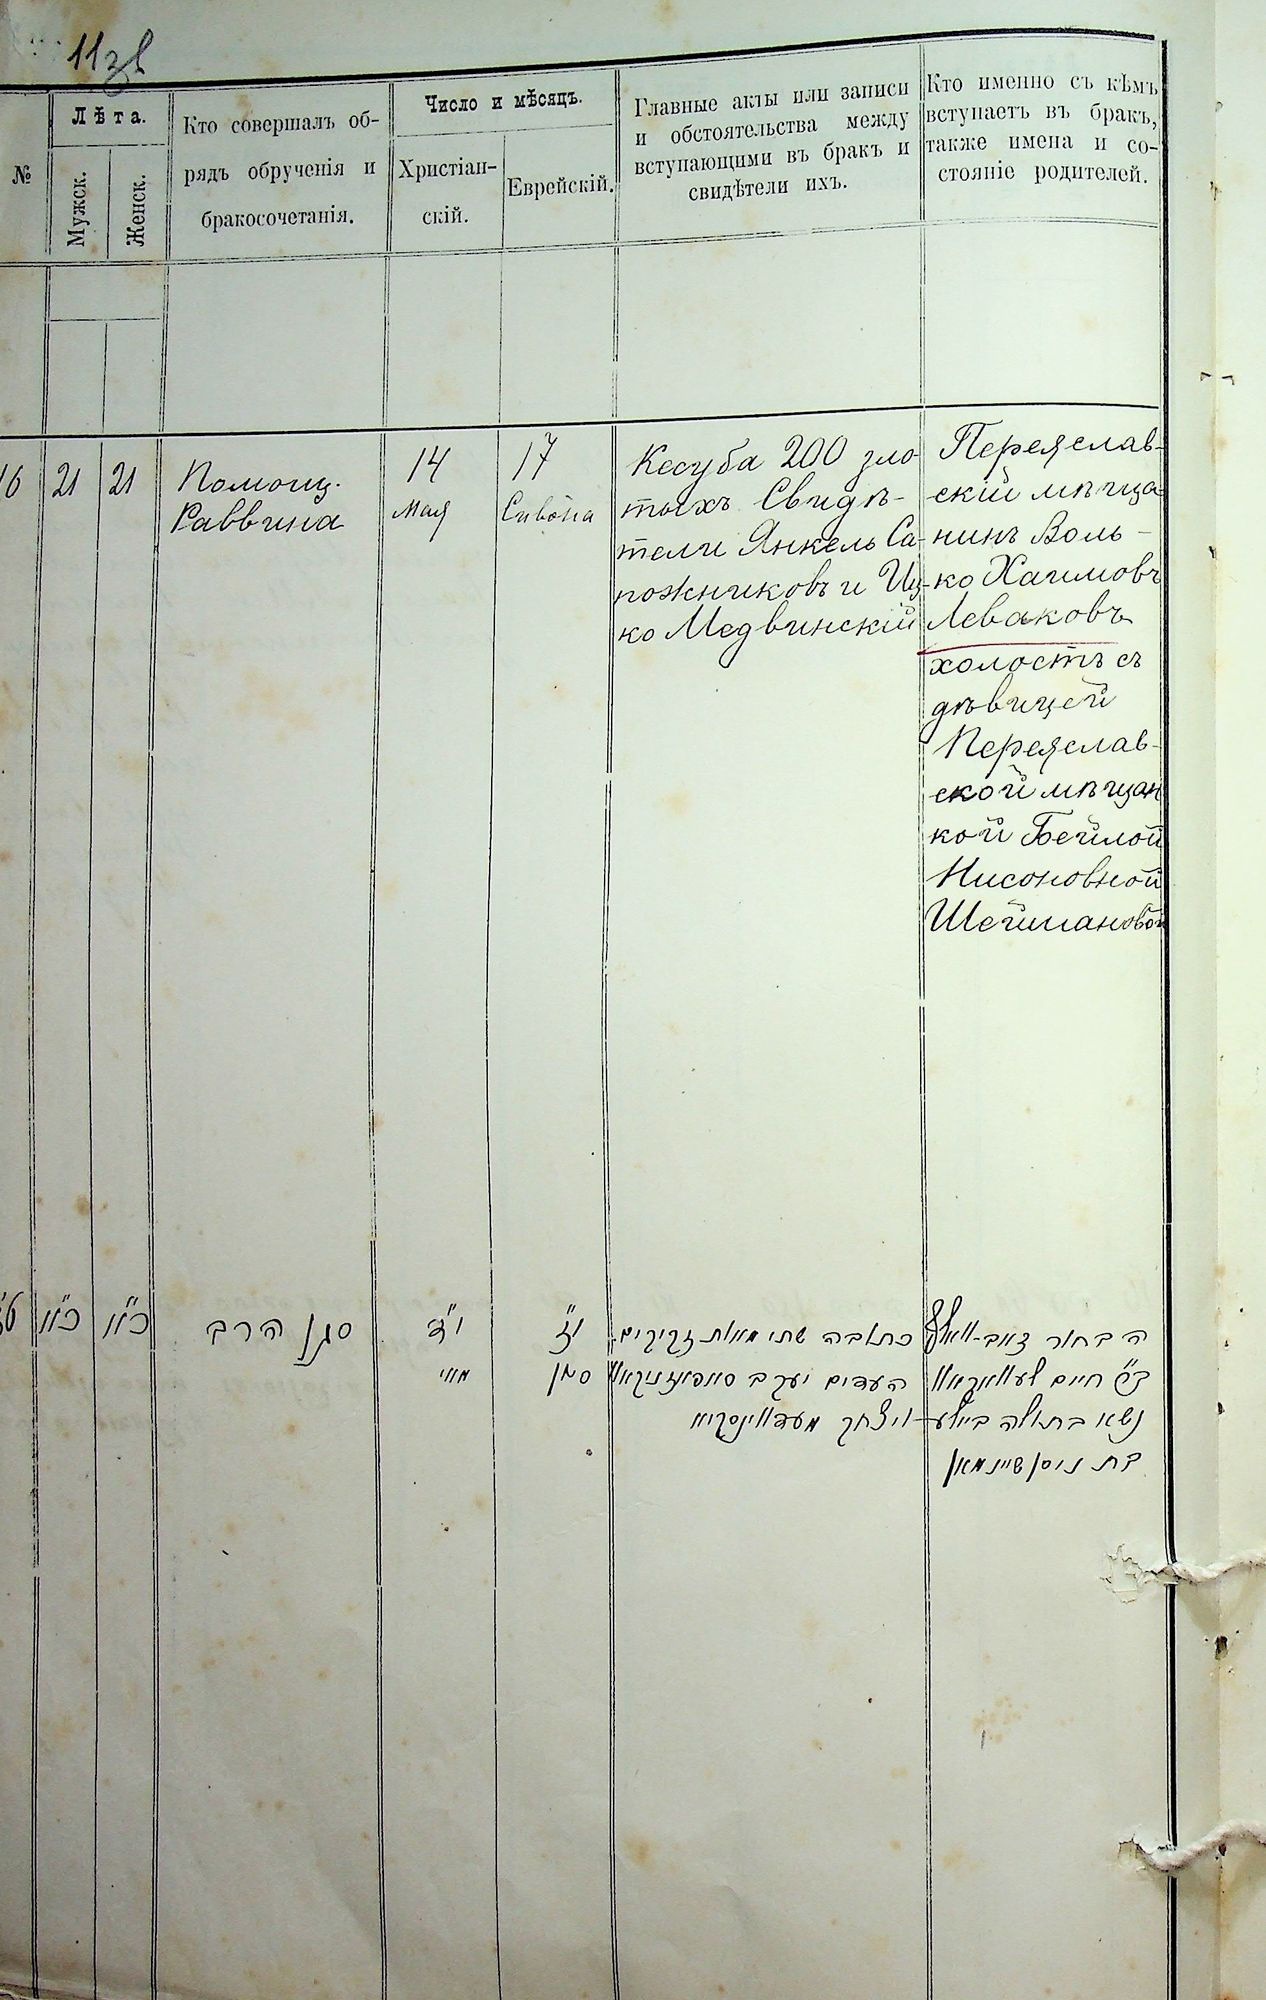 11зв
№
Лѣта.
Мужск.
Женск.
Кто совершалъ об-
рядъ обрученія и
бракосочетанія.
Число и мѣсяцъ.
Христіан-
скій.
Еврейскій.
Главные акты или записи
и обстоятельства между
вступающими въ бракъ и
свидѣтели ихъ.
Кто именно съ кѣмъ
вступаетъ въ бракъ,
также имена и со-
стояніе родителей.
16
21
21
Помощ.
Раввина
14
Мая
17
Сивона
Кесуба 200 зло-
тыхъ Свидѣ-
тели Янкель Са-
пожниковъ и Иц-
ко Медвинскій
Переяслав-
скій мѣща-
нинъ Воль-
ко Хаимовъ
Леваковъ
холостъ съ
дѣвицей
Переяслав-
ской мѣщан
кой Бейлой
Нисоновной
Шейшановой
טז
כ"א
כ"א
סגן הרב
י"ד
מאי
י"ז
סיון
כתובה שתי מאות זקוקים
העדים יעקב סאפאזניקאוו
ויצחק מעדווינסקיא
הבחור זאב-וואלף
ב"ר חיים לעוואקאוו
נשא בתולה ביילע
בת ניסן שיינמאן